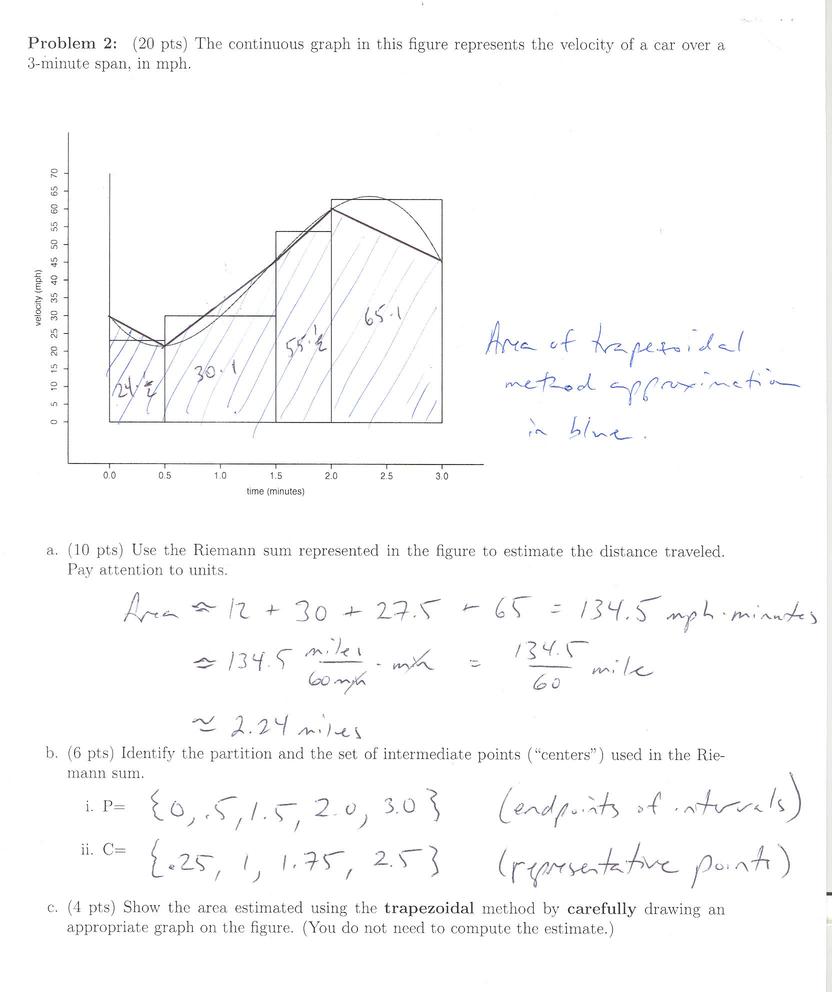 Problem 2: (20 pts) The continuous graph in this figure represents the velocity of a car over a
3-minute span, in mph.
70
65
60
55
50
45
40
35
30
25
20
15
10
5
0
velocity (mph)
24·½
30·1
55·½
65·1
Area of trapezoidal
method approximation
in blue.
0.0 0.5 1.0 1.5 2.0 2.5 3.0
time (minutes)
a. (10 pts) Use the Riemann sum represented in the figure to estimate the distance traveled.
Pay attention to units.
Area ≈ 12 + 30 + 27.5 + 65 = 134.5 mph·minutes
≈ 134.5 miles/60 min · min = 134.5/60 mile
≈ 2.24 miles
b. (6 pts) Identify the partition and the set of intermediate points (“centers”) used in the Rie-
mann sum.
i. P= {0, .5, 1.5, 2.0, 3.0} (endpoints of intervals)
ii. C= {.25, 1, 1.75, 2.5} (representative points)
c. (4 pts) Show the area estimated using the trapezoidal method by carefully drawing an
appropriate graph on the figure. (You do not need to compute the estimate.)